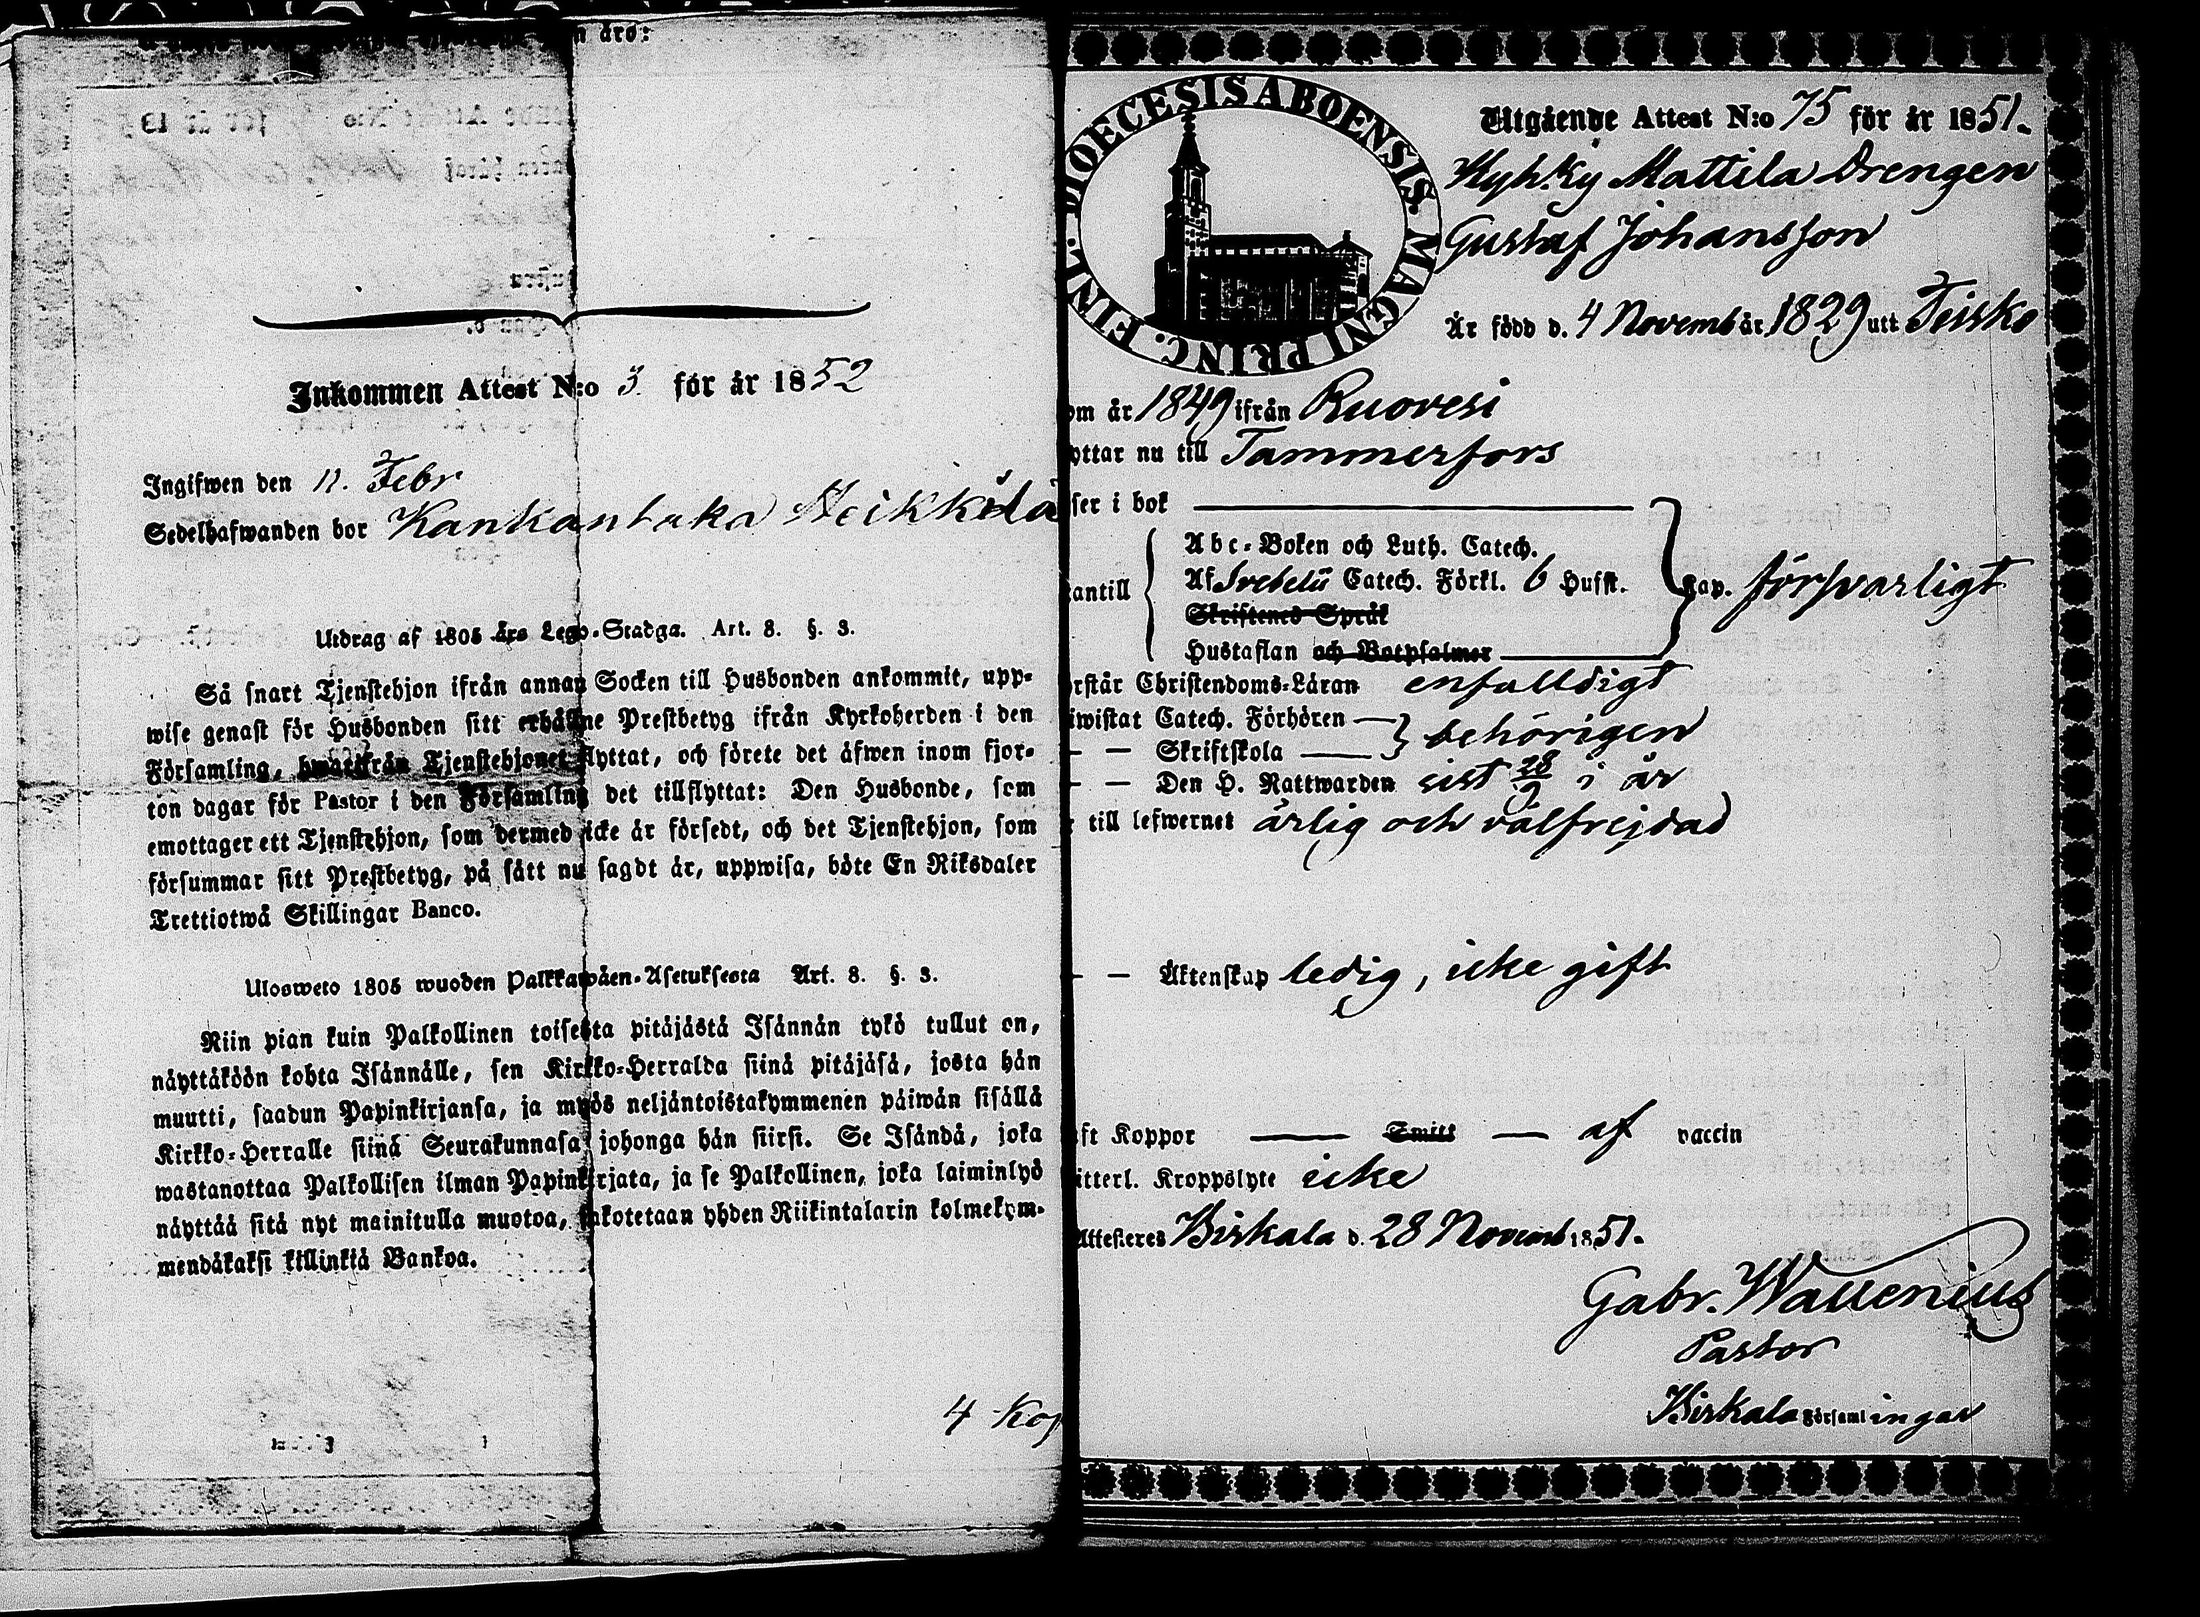 än äro:
Inkommen Attest N:o 3. för år 1852
Ingifwen den 12. Febr
Sedelhafwanden bor Kankantaka Heikkilä
Utdrag af 1805 års Lego-Stadga. Art. 8. §. 3.
Så snart Tjenstehjon ifrån annan Socken till Husbonden ankommit, upp-
wise genast för Husbonden sitt erhållne Prestbetyg ifrån Kyrkoherden i den
Församling, hwarifrån Tjenstehjonet flyttat, och förete det äfwen inom fjor-
ton dagar för Pastor i den Församling det tillflyttat: Den Husbonde, som
emottager ett Tjenstehjon, som dermed icke är försedt, och det Tjenstehjon, som
försummar sitt Prestbetyg, på sätt nu sagdt är, uppwisa, böte En Riksdaler
Trettiotwå Skillingar Banco.
Ulosweto 1805 wuoden Palkkawäen-Asetuksesta Art. 8. §. 3.
Niin pian kuin Palkollinen toisesta pitäjästä Isännän tykö tullut on,
näyttäköön kohta Isännälle, sen Kirkko-Herralda siinä pitäjäsä, josta hän
muutti, saadun Papinkirjansa, ja myös neljäntoistakymmenen päiwän sisällä
Kirkko-Herralle siinä Seurakunnasa johonga hän siirsi. Se Isändä, joka
wastanottaa Palkollisen ilman Papinkirjata, ja se Palkollinen, joka laiminlyö
näyttää sitä nyt mainitulla muotoa, sakotetaan yhden Riikintalarin kolmekym-
mendäkaksi killinkiä Bankoa.
4 Kop
DIOECESIS ABOENSIS. MAGNI PRINC. FINL.
Utgående Attest N:o 75 för år 1851.
Kyhky Mattila Drengen
Gustaf Johansson
Är född d. 4 Novemb år 1829 utt Teisko
om år 1849 ifrån Ruovesi
yttar nu till Tammerfors
ser i bok
Abc-Boken och Luth. Catech.
antill Af Svebelii Catech. Förkl. 6 Hufst. Cap. försvarligt
Skriftenes Språk
Hustaflan och Botpsalmer
rstår Christendoms-Läran enfalldigt
iwistat Catech. Förhören
— — Skriftskola behörigen
— — Den H. Nattwarden sist 28/9 i år
till lefwernet ärlig och välfrejdad
— — Äktenskap ledig, icke gift
ft Koppor Smitt af vaccin
itterl. Kroppslyte icke
Attesteres Birkala d. 28 Novemb 1851.
Gabr. Wallenius
Pastor
Birkala Församlingar